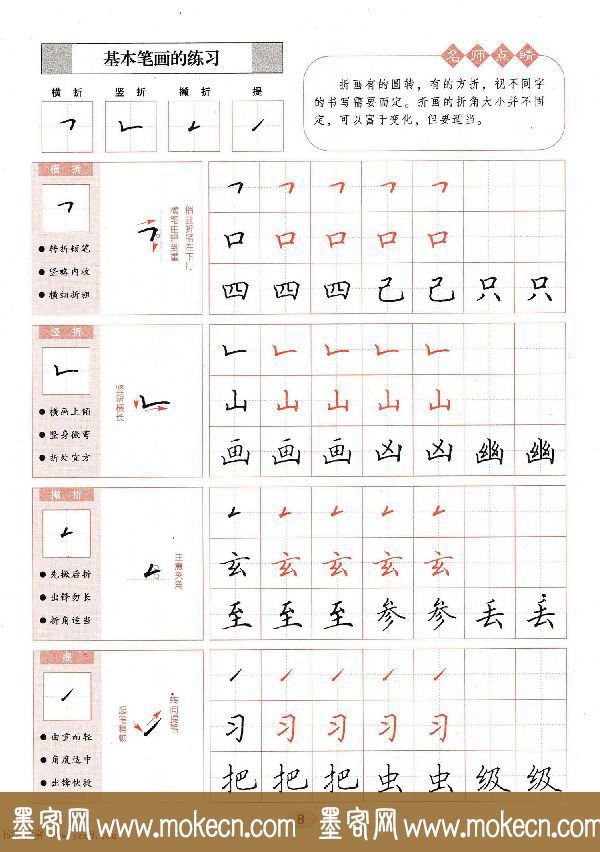 基本笔画的练习
名师点睛
折画有的圆转，有的方折，视不同字
的书写需要而定。折画的折角大小并不固
定，可以富于变化，但要适当。
横折 竖折 撇折 提
横折
转折顿笔
竖略内收
横细折粗
横笔由轻到重
稍驻折笔左下行
口 口 口 口 口
四 四 四 己 己 只 只
竖折
横画上倾
竖身微弯
折处宜方
竖短横长
山 山 山 山 山
画 画 画 凶 凶 幽 幽
撇折
先撇后折
出锋勿长
折角适当
注意夹角
玄 玄 玄 玄 玄
至 至 至 参 参 丢 丢
提
由重而轻
角度适中
出锋快锐
起笔稍顿
转向提笔
习 习 习 习 习
把 把 把 虫 虫 级 级
8
墨客网 www.mokecn.com 墨客网 www.mokecn.com